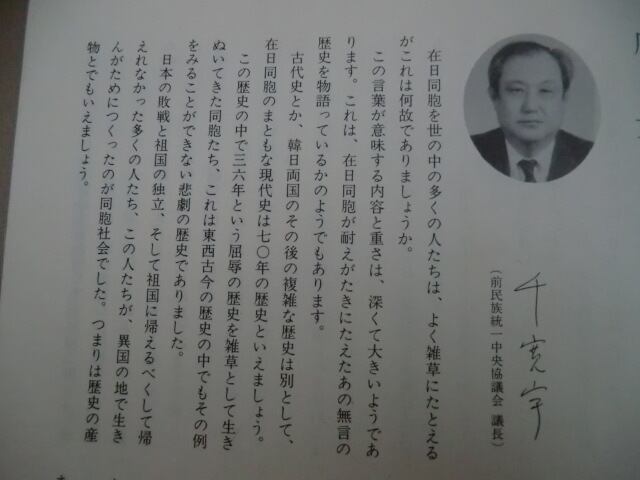 千寛宇
(前民族統一中央協議会 議長)
在日同胞を世の中の多くの人たちは、よく雑草にたとえる
がこれは何故でありましょうか。
この言葉が意味する内容と重さは、深くて大きいようであ
ります。これは、在日同胞が耐えがたきにたえたあの無言の
歴史を物語っているかのようでもあります。
古代史とか、韓日両国のその後の複雑な歴史は別として、
在日同胞のまともな現代史は七〇年の歴史といえましょう。
この歴史の中で三六年という屈辱の歴史を雑草として生き
ぬいてきた同胞たち、これは東西古今の歴史の中でもその例
をみることができない悲劇の歴史でありました。
日本の敗戦と祖国の独立、そして祖国に帰えるべくして帰
えれなかった多くの人たち、この人たちが、異国の地で生き
んがためにつくったのが同胞社会でした。つまりは歴史の産
物とでもいえましょう。